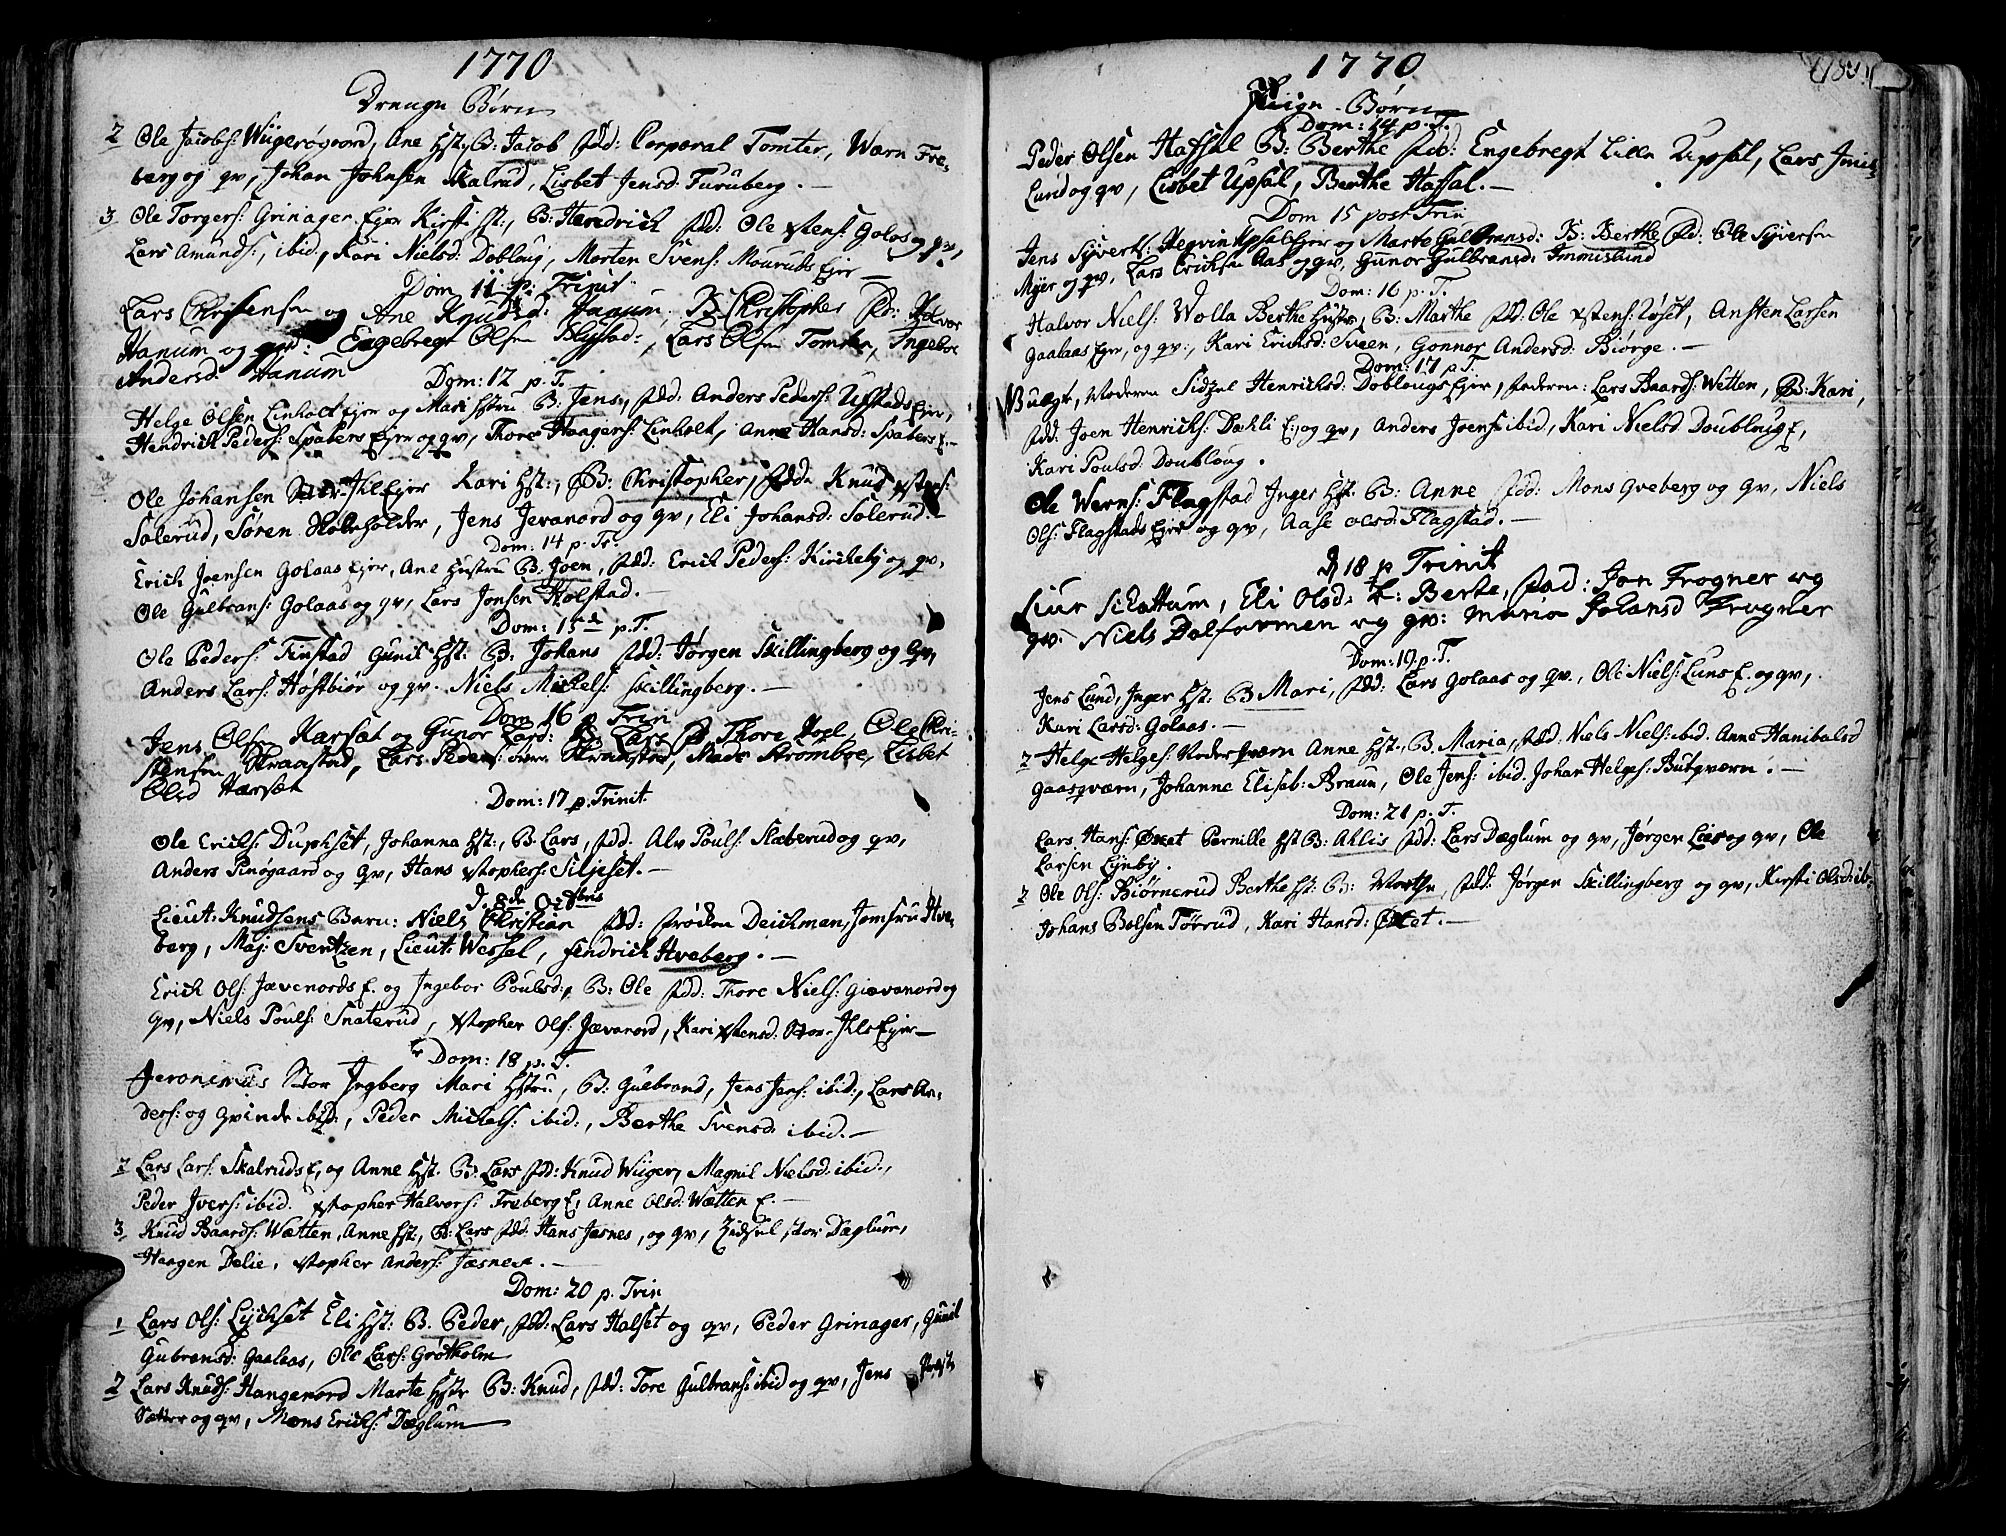 1770
Drenge Børn
2 Ole Jacobs: Wiigerøgaard, Ane Hst: B: Jacob fdd: Corporal Tomter, Warn Fre-
berg og qv, Johan Johnsen Skalrud, Lisbet Jensd. Furuberg. -
3 Ole Torgers: Grinager Ejer Kirsti Hst:, B: Hendrich fdd: Ole Xstens: Golos og qv,
Lars Amunds:, ibid, Kari Nielsd: Doblaug, Morten Svens: Mouruds Ejer -
Dom 11 p: Trinit
Lars Christensen og Ane Knudsd: Hanum, B: Christopher fdr: Halvor
Hanum og qvi: Engebregt Olsen Blystad:, Lars Olsen Tomter, Ingebor
Andersd. Hanum
Dom: 12 p. T.
Helge Olsen Linholt Ejer og Mari Hstru B: Jens, fdd: Anders Peders: Ufstads Ejer,
Hendrich Peders: Spabers Ejer og qv, Thore Haagens: Linholt, Anne Hansd: Spabers E. -
Ole Johansen Stor-Ihl Ejer Kari Hst:, B: Christopher, fdd: Knud Xstens:
Solerud, Søren Holeholder, Jens Jevanord og qv, Eli Johansd: Solerud. -
Dom: 14 p. Tr.
Erich Joensen Golaas Ejer, Ane Hustru B: Joen, fdd: Erich Peders: Kirckeby og qv,
Ole Gulbrans: Golaas og qv, Lars Jonsen Holstad. -
Dom: 15de p. T.
Ole Peders: Finstad Gunil Hst: B: Johans fdd: Jørgen Skillingberg og Qv,
Anders Lars: Høstbiør og qv. Niels Mickels: Skillingberg. -
Dom 16 p Trin
Jens Olsen Harsæt og Gunor Larsd: B Lars fdr Thore Hoel, Ole Chri-
stensen Skraastad, Lars Peders: øvre Skraastad, Mads Strømboe, Lisbet
Olsd Harsæt
Dom: 17 p. Trinit.
Ole Erichs: Duphset, Johanna Hst:, B: Lars, fdd: Alv Pouls: Slæberud og qv,
Anders Pinøgaard og Qv, Hans Xstophers: Siljeset. -
d. 8de Octbris
Lieut: Knudsens Barn: Niels Christian fdd: frøiken Deichman, Jomfru Hve-
berg, Maj: Sventzen, Lieut: Wessel, fendrich Hveberg. -
Erich Ols: Jævenords E. og Ingebor Poulsd:, B: Ole fdd: Thore Niels: Giævanord og
Qv, Niels Pouls: Snaterud, Xstopher Ols: Jævanord, Kari Xstensd: Stor-Ihls Ejer -
Dom: 18 p. T.
Jeronimus Stor Ingberg Mari Hstru, B: Gulbrand, Jens Jens: ibid:, Lars An-
ders: og Qvinde ibid:, Peder Mickels: ibid:, Berthe Svensd: ibid. -
2 Lars Lars: Skalruds E, og Anne Hst. B: Lars fdd: Knud Wiiger, Magnil Nielsd: ibid:,
Peder Ivers: ibid. Xstopher Halvors: Freberg E, Anne Olsd: Wætten E. -
3 Knud Baards: Wætten, Anne Hst:, B: Lars fdd: Hans Jæsnes, og qv, Zidsel, stor Dæglum,
Haagen Delie, Xstopher Anders: Jæsnes. -
Dom: 20 p. Trin
1 Lars Ols: Lyckset Eli Hst: B. Peder, fdd: Lars Halset og qv, Peder Grinager, Gunil
Gubransd: Gaalaas, Ole Lars: Grøtholm
2 Lars Knuds: Hangenord Marte Hstr B: Knud, fdd: Tore Gulbrans: ibid og qv, Jens
Sætter og qv, Mons Erichs: Dæglum
1770
Piige-Børn
Dom: 14 p. T.
Peder Olsen Hafsal B: Berthe fdd: Engebregt Lille Upsal, Lars
Lund og qv, Lisbet Upsal, Berthe Hafsal. -
Dom 15 post Trin
Jens Syverts: Upsal Ejer og Marte Gulbransd: B: Berthe fd: Ole Syversen
Myer og qv, Lars Erichsen Aas og qv, Gunor Gulbransd: Immislund
Dom: 16 p. T.
Halvor Niels: Wolla Berthe Hustr, B: Marthe fdd: Ole Xstens: Løset, Ansten Larsen
Gaalaas Ejer, og qv:, Kari Erichsd: Sveen, Gonnor Andersd: Biørge. -
Dom: 17 p T.
Uægt, Moderen Sidzel Henrichsd: Doblougs Ejer, Faderen: Lars Baards: Wetten, B: Kari,
fdd: Joen Henrichs: Dæhli E., og qv, Anders Joens: ibid, Kari Nielsd Doubloug E,
Kari Poulsd: Doubloug.
Ole Werns: Flagstad Inger Hst: B: Anne fdd: Mons Qveberg og Qv, Niels
Ols: Flagstads Ejer og qv, Aase Olsd: Flagstad. -
D 18 p Trinit
Siur Schattum, Eli Olsd: B: Berte, fad: Jon Frogner og
qv: Niels Dalfarmen og qv: Maria Johansd Frogner
Dom: 19 p. T.
Jens Lund, Inger Hst: B Mari, fdd: Lars Golaas og qv., Ole Niels: Luns E. og qv,
Kari Larsd: Golaas. -
2 Helge Helges: Neder Qværn Anne Hst:, B. Maria, fdd: Niels Niels: ibid. Anne Hanibalsd
Gaasqværn, Johanne Elisab: Braun, Ole Jens: ibid. Johan Helges: Butqværn. -
Dom: 21 p. T.
Lars Hans: Øxset Pernille Hst B: Ahlis fdd: Lars Dæglum og qv, Jørgen Lier og qv, Ole
Larsen Lynby.
2 Ole Ols: Biørnerud Berthe Hst: B: Marthe, fdd: Jørgen Skillingberg og qv, Kirsti Olsd: ib-
Johans Bolsen Tørrud, Kari Hansd: Øxset. -